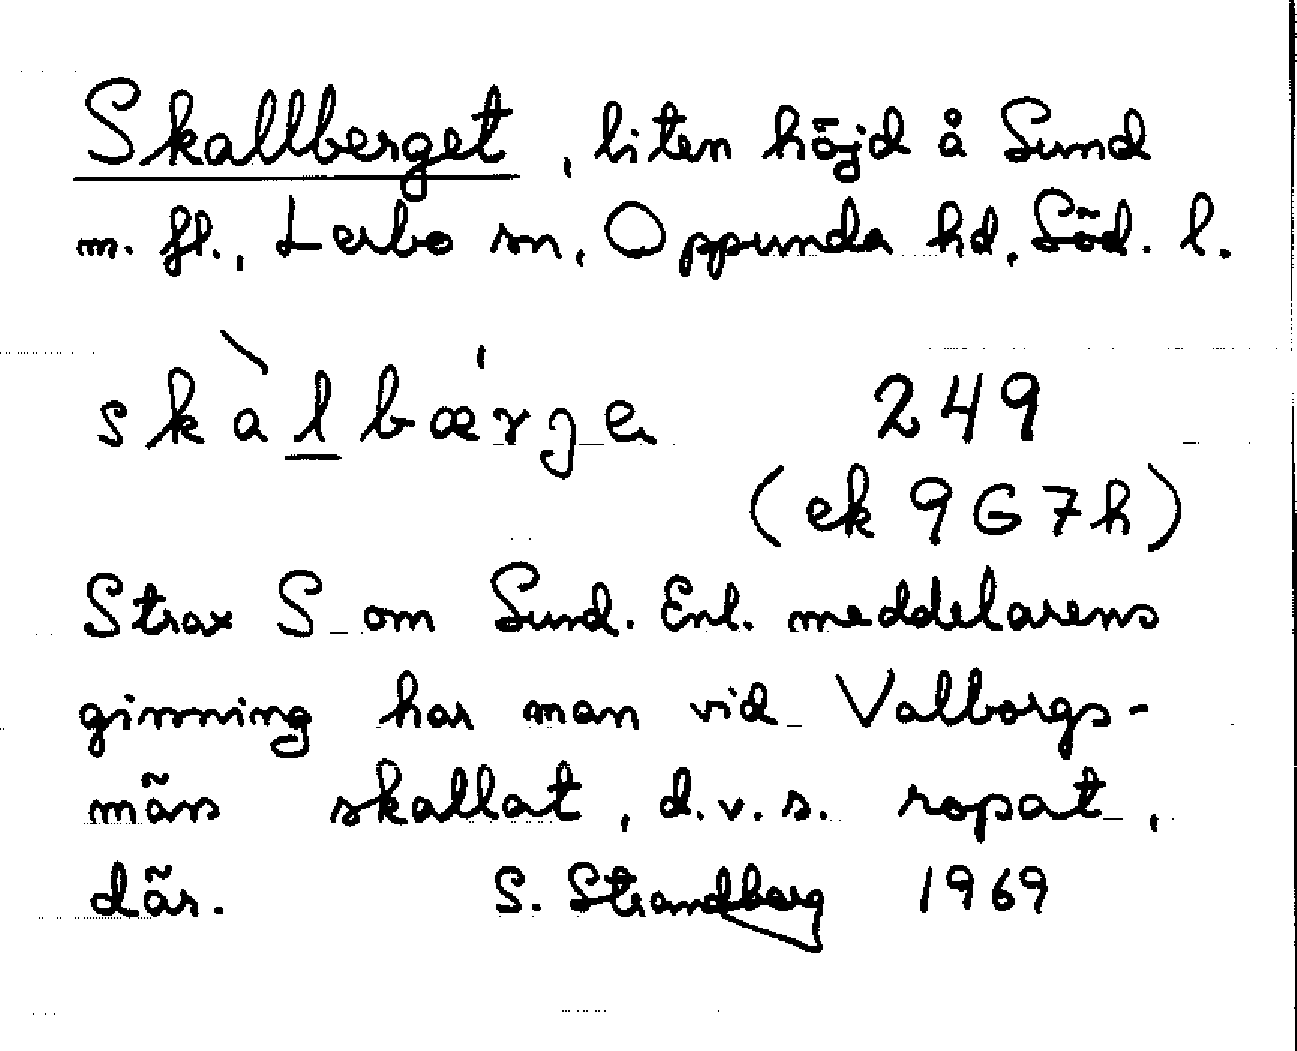 Skallberget, liten höjd å Sund
m. fl., Lerbo sn, Oppunda hd, Söd. l.
skàlbæ'rje 249
(ek 9G7h)
Strax S om Sund. Enl. meddelarens
ginning har man vid Valborgs-
mäss skallat, d.v.s. ropat,
där. S. Strandberg 1969